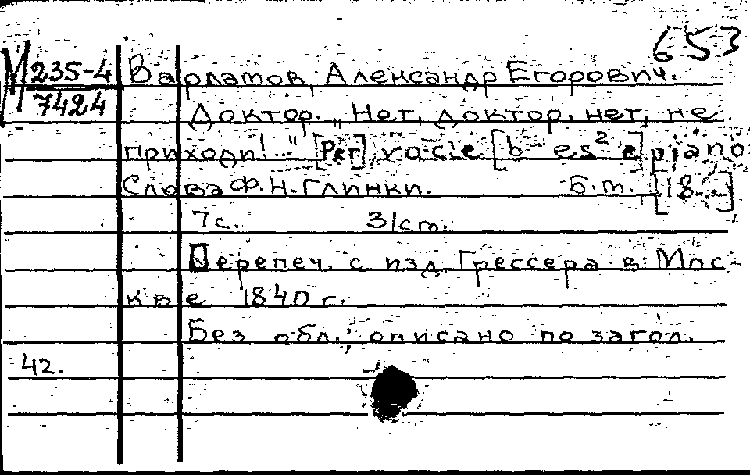 653
М 235-4
7424
Варламов, Александр Егорович.
Доктор. „Нет, доктор, нет, не
приходи!.." [Per] voc.i.e [b - es² e] piano
Слова Ф.Н. Глинки. Б.т. [18--]
7 с. 31 cm.
Перепеч. с изд. Грессера в Мос-
кве 1840 г.
Без обл.; описано по загол.
42.